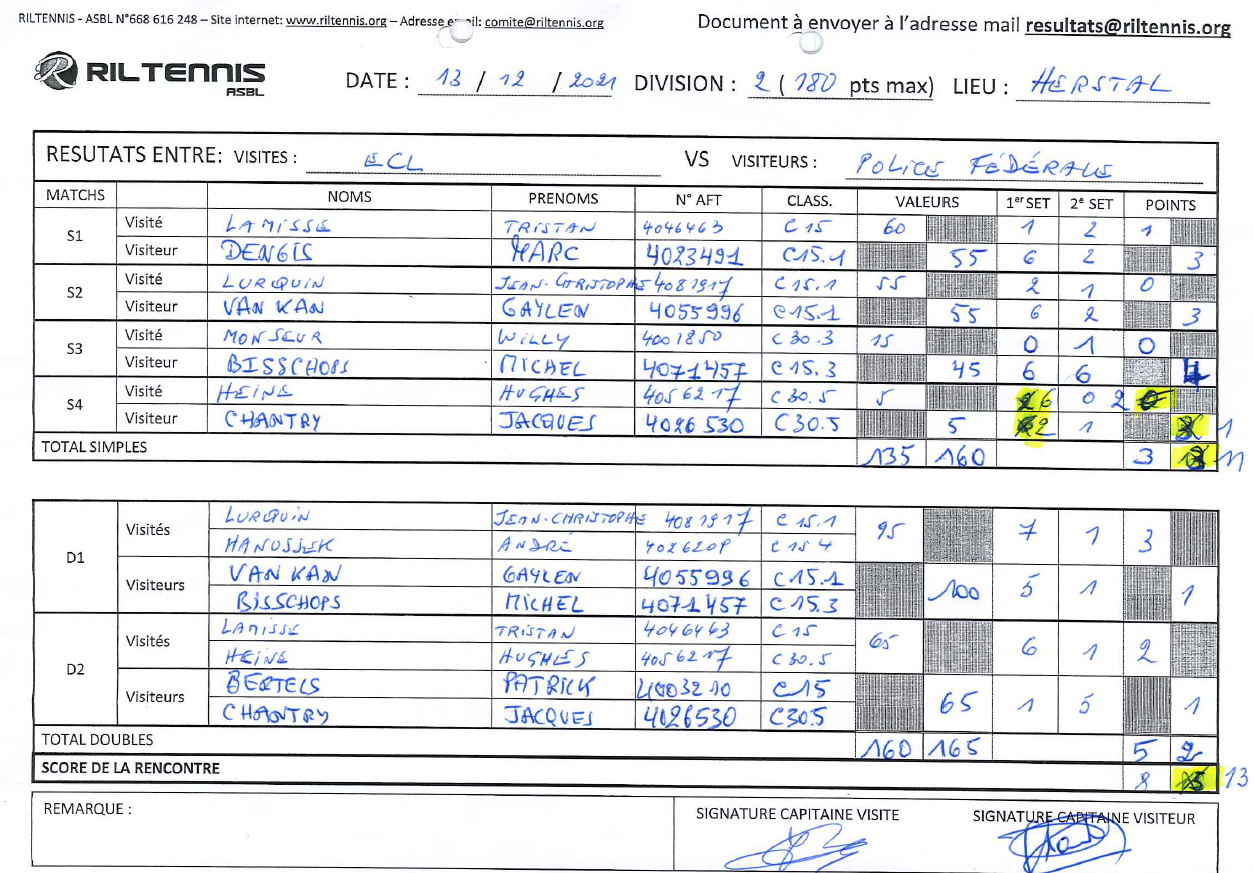 RILTENNIS - ASBL N°668 616 248 – Site internet: www.riltennis.org – Adresse email: comite@riltennis.org
Document à envoyer à l'adresse mail resultats@riltennis.org
RILTENNIS ASBL
DATE : 13 / 12 / 2021 DIVISION : 2 ( 180 pts max) LIEU : HERSTAL
RESUTATS ENTRE: VISITES : ECL VS VISITEURS : POLICE FÉDÉRALE
MATCHS NOMS PRENOMS N° AFT CLASS. VALEURS 1er SET 2e SET POINTS
S1 Visité LAMISSE TRISTAN 4046463 C15 60 1 2 1
Visiteur DENGIS MARC 4023491 C15.1 55 6 2 3
S2 Visité LURQUIN JEAN-CHRISTOPHE 4081917 C15.1 55 2 1 0
Visiteur VAN KAN GAYLEN 4055996 C15.1 55 6 2 3
S3 Visité MONSEUR WILLY 4001850 C30.3 15 0 1 0
Visiteur BISSCHOPS MICHEL 4071457 C15.3 45 6 6 4
S4 Visité HEINE HUGHES 4056217 C30.5 5 6 0 2
Visiteur CHANTRY JACQUES 4026530 C30.5 5 2 1 1
TOTAL SIMPLES 135 160 3 11
D1 Visités LURQUIN JEAN-CHRISTOPHE 4081917 C15.1 95 7 1 3
HANOSSEK ANDRÉ 4026209 C15 4
Visiteurs VAN KAN GAYLEN 4055996 C15.1 100 5 1 1
BISSCHOPS MICHEL 4071457 C15.3
D2 Visités LAMISSE TRISTAN 4046463 C15 65 6 1 2
HEINE HUGHES 4056217 C30.5
Visiteurs BERTELS PATRICK 4003210 C15 65 1 5 1
CHANTRY JACQUES 4026530 C30.5
TOTAL DOUBLES 160 165 5 2
SCORE DE LA RENCONTRE 8 13
REMARQUE : SIGNATURE CAPITAINE VISITE SIGNATURE CAPITAINE VISITEUR